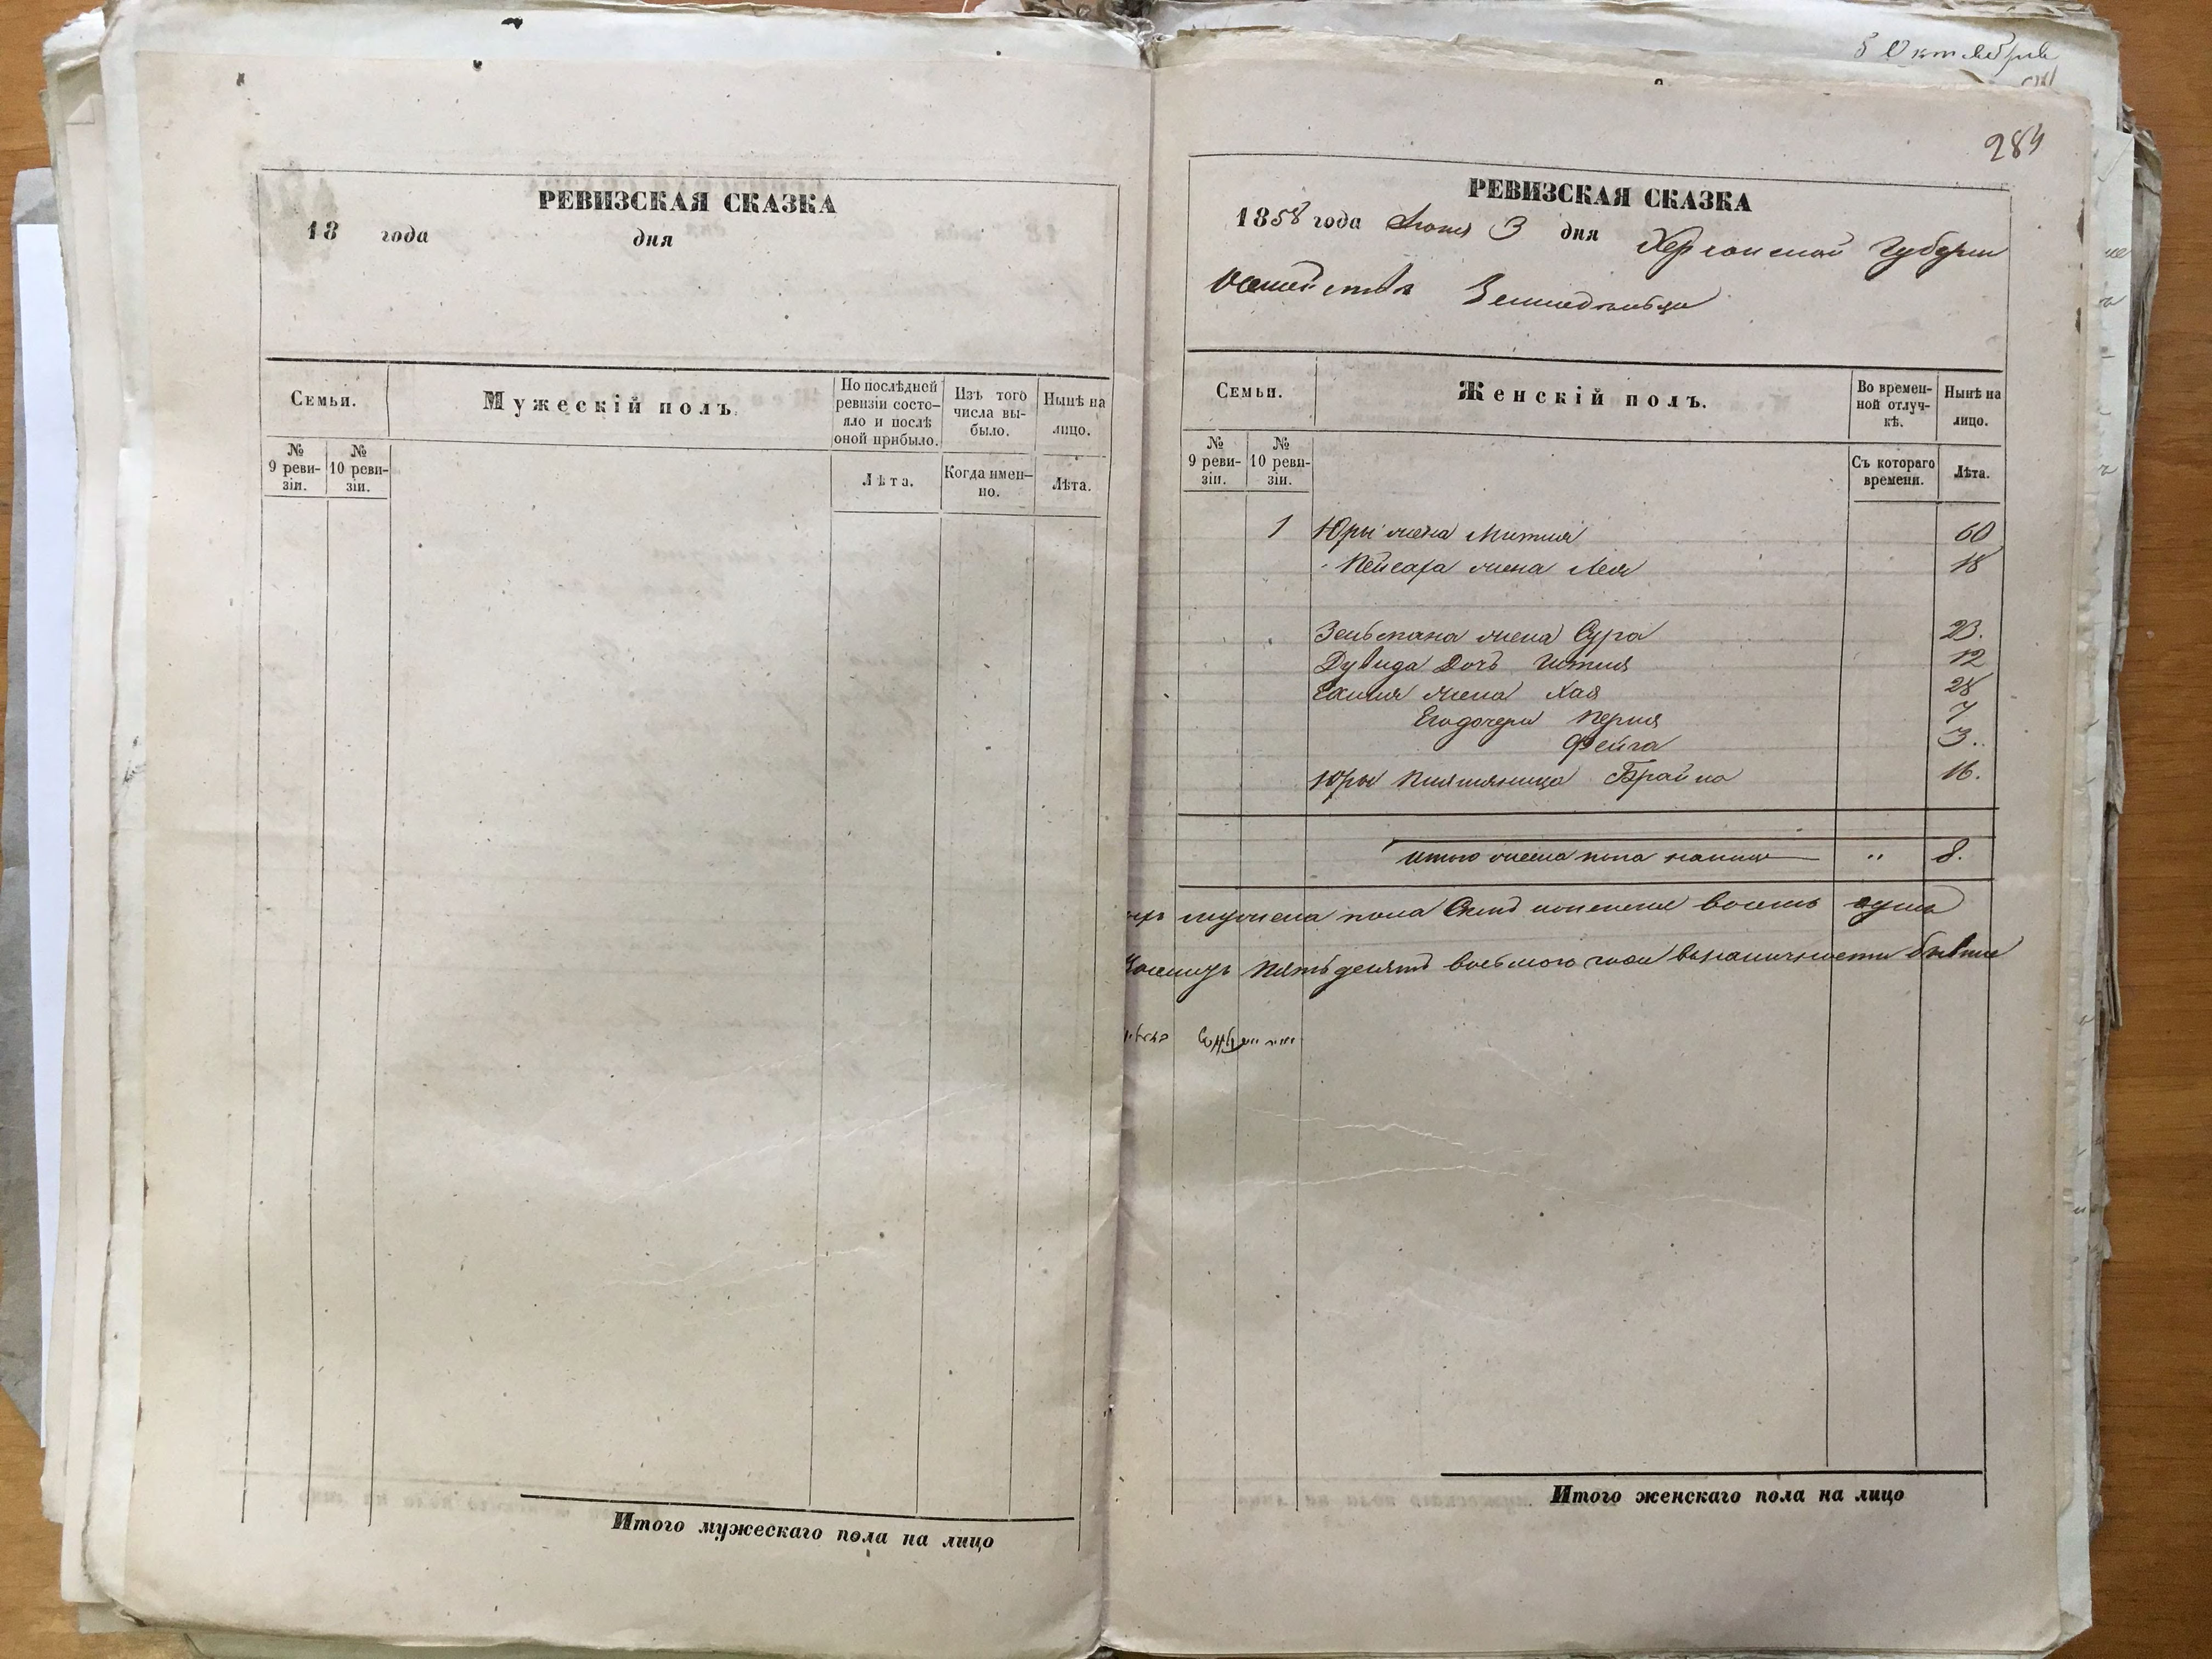 РЕВИЗСКАЯ СКАЗКА
18 года дня
Семьи.
Мужескій полъ.
По послѣдней ревизіи состояло и послѣ оной прибыло.
Изъ того числа выбыло.
Нынѣ на лицо.
№ 9 ревизіи.
№ 10 ревизіи.
Лѣта.
Когда именно.
Лѣта.
Итого мужескаго пола на лицо
5 Октября
284
РЕВИЗСКАЯ СКАЗКА
1858 года Июня 3 дня Херсонской Губерни
Семьи.
Женскій полъ.
Во временной отлучкѣ.
Нынѣ на лицо.
№ 9 ревизіи.
№ 10 ревизіи.
Съ котораго времени.
Лѣта.
1 Юры жена 60
Пейсаха жена Лея 18
Зельмана жена Сура 23.
Дувида Дочь 12
жена Хая 28
Его дочери Перля 7
Фейга 3.
Юры Племяница Брайна 16.
Итого женска пола налицо " 8.
мужска пола женска восемь душъ
Пятьдесятъ восьмого года
Итого женскаго пола на лицо